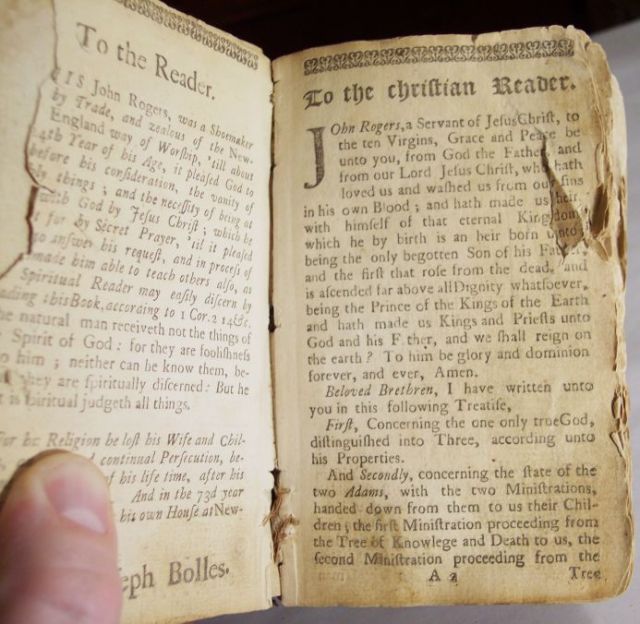 To the Reader.
IS John Rogers, was a Shoemaker
by Trade, and zealous of the New-
England way of Worſhip, 'till about
4th Year of his Age, it pleaſed God to
before his conſideration, the vanity of
ly things ; and the neceſſity of being at
with God by Jeſus Chriſt ; which he
t for by Secret Prayer, 'til it pleaſed
to anſwer his requeſt, and in proceſs of
made him able to teach others alſo, as
Spiritual Reader may eaſily diſcern by
ading this Book, according to 1 Cor. 2 14&c.
he natural man receiveth not the things of
Spirit of God : for they are fooliſhneſs
o him ; neither can he know them, be-
they are ſpiritually diſcerned : But he
t is piritual judgeth all things.
For he Religion he loſt his Wife and Chil-
continual Perſecution, be-
of his life time, after his
And in the 73d year
his own Houſe at New-
eph Bolles.
To the chriſtian Reader.
JOhn Rogers, a Servant of JeſusChriſt, to
the ten Virgins, Grace and Peace be
unto you, from God the Father, and
from our Lord Jeſus Chriſt, who hath
loved us and waſhed us from our ſins
in his own Blood ; and hath made us heir,
with himſelf of that eternal Kingdom,
which he by birth is an heir born unto,
being the only begotten Son of his Father,
and the firſt that roſe from the dead, and
is aſcended far above allDignity whatſoever,
being the Prince of the Kings of the Earth
and hath made us Kings and Prieſts unto
God and his F ther, and we ſhall reign on
the earth ? To him be glory and dominion
forever, and ever, Amen.
Beloved Brethren, I have written unto
you in this following Treatiſe,
Firſt, Concerning the one only trueGod,
diſtinguiſhed into Three, according unto
his Properties.
And Secondly, concerning the ſtate of the
two Adams, with the two Miniſtrations,
handed down from them to us their Chil-
dren ; the firſt Miniſtration proceeding from
the Tree of Knowlege and Death to us, the
ſecond Miniſtration proceeding from the
A 2 Tree